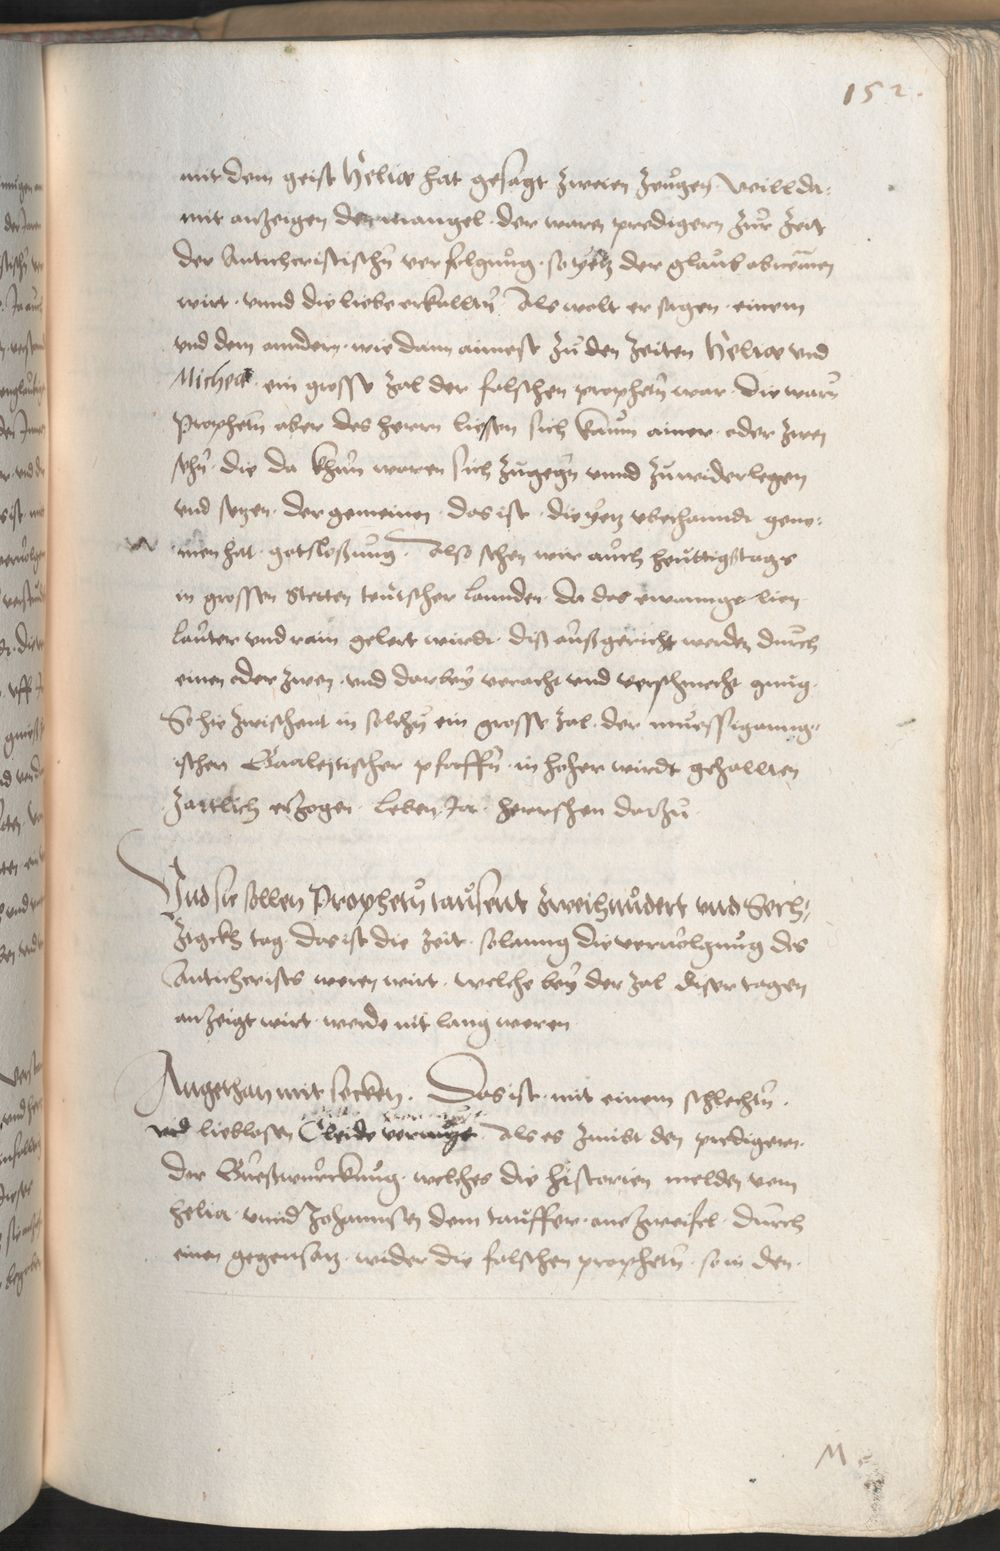 152.
mit dem geist Helie hat gesagt zweien zeugen. Will da-
mit anzeigen den mangel. der waren predigern zur zeit
der Antichristischn verfolgung. so yetz der glaub abnemen
wirt. vnnd die liebe erkalltn. Als wolt er sagen. einem
vnd dem anndern. wie dann ainest zu den zeiten Helie vnd
Michee. ein grosse zal der falschen prophetn war. die warn
Prophetn aber des herrn liessen sich kaum ainer. oder zwen
sehn. die da khün waren sich zugegn vnnd zuwiderlegen
vnd setzen. der gemeinen. das ist. die yetz vberhanndt geno-
men hat. gotsloßung. Also sehen wir auch heuttigstags
in grossen Stetten teutscher lannden. da das ewanngelien
lauter vnd rain gelert wirdt. diß außgericht werden durch
einen oder zwen. vnd darbey veracht vnd verschmecht gnug.
So hie zwischent in solchn ein grosse zal. der muessiganng-
ischen Baalejtischer pfaffn. in hoher wirdt gehallten
zartlich erzogen. leben. Ja. herrschen darzu
Vnd sie sollen Prophetn tausent zweihundert vnd Sech-
zigckh tag. das ist die zeit. solanng die vervolgnug des
Antichrists weren wirt. welche bey der zal diser tagen
anzeigt wirt. werde nit lang weren
Angethan mit secken. Das ist. mit einem schlechtn.
vnd lieblosen Cleide. Als es zimbt den predigern.
der Bueßwurckung. welches die historien melden vom
Helia. vnnd Johannsen dem tauffer. ane zweifel. durch
einen gegensatz. wider die falschen prophetn. so in den.
M